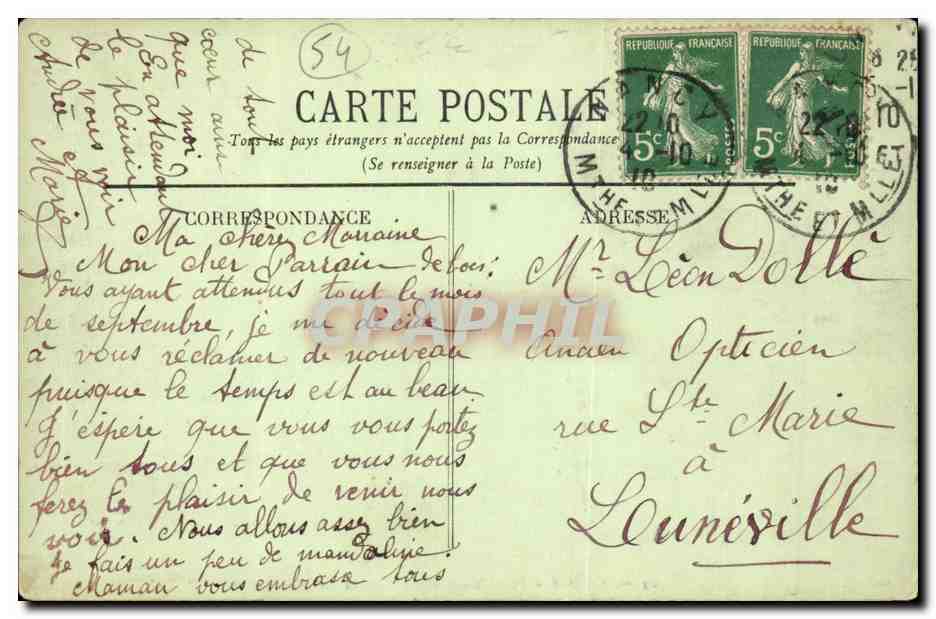 54
CARTE POSTALE
Tous les pays étrangers n'acceptent pas la Correspondance
(Se renseigner à la Poste)
CORRESPONDANCE
ADRESSE
REPUBLIQUE FRANÇAISE
5c
POSTES
REPUBLIQUE FRANÇAISE
5c
POSTES
NANCY
22 10
4 -10
10
MTHE & MLLE
22
MTHE ET MLLE
Ma chère Marraine
Mon cher Parrain
Vous ayant attendus tout le mois
de septembre, je me décide
à vous réclamer de nouveau
puisque le temps est au beau
J'espère que vous vous portez
bien tous et que vous nous
ferez le plaisir de venir nous
voir. Nous allons assez bien
Je fais un peu de mandoline.
Maman vous embrasse tous
de tout
cœur ainsi
que moi
En attendant
le plaisir
de vous voir
Andrée et
Marie
Mr Léon Dollé
Ancien Opticien
rue Ste Marie
à
Lunéville
CPAPHIL